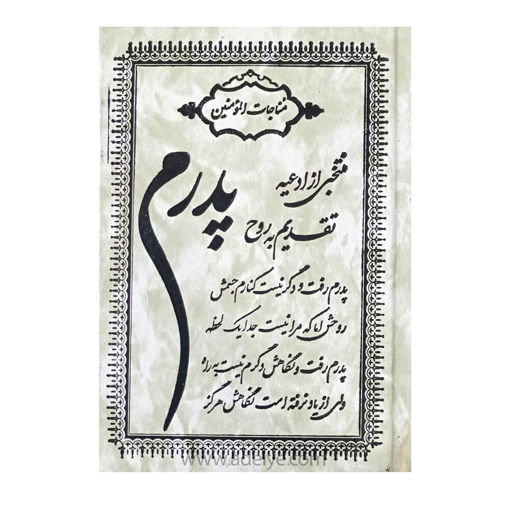 مناجات المؤمنین
منتخبی از ادعیه
تقدیم به روح
پدرم
پدرم رفت و دگر نیست کنارم جسمش
روحش اما که مرا نیست جدا یک لحظه
پدرم رفت و نگاهش دگرم نیست به راه
ولی از یاد نرفته است نگاهش هرگز
www.adeiye.com